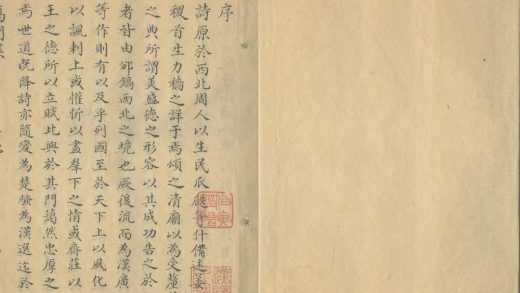 序
詩原於西北周人以生民瓜瓞等什備述姜
稷首生力穡之詳于焉頌之清廟以為受釐
之典所謂美盛德之形容以其成功告之於
者皆由邠鎬西北之境也厥後流而為漢廣
等作則有以及乎列國至於天下上以風化
以諷刺上或懽忻以盡羣下之情或齊莊以
王之德所以立賦比興於其門藹然忠厚之
焉世道既降詩亦隨變為楚騷為漢選迄於